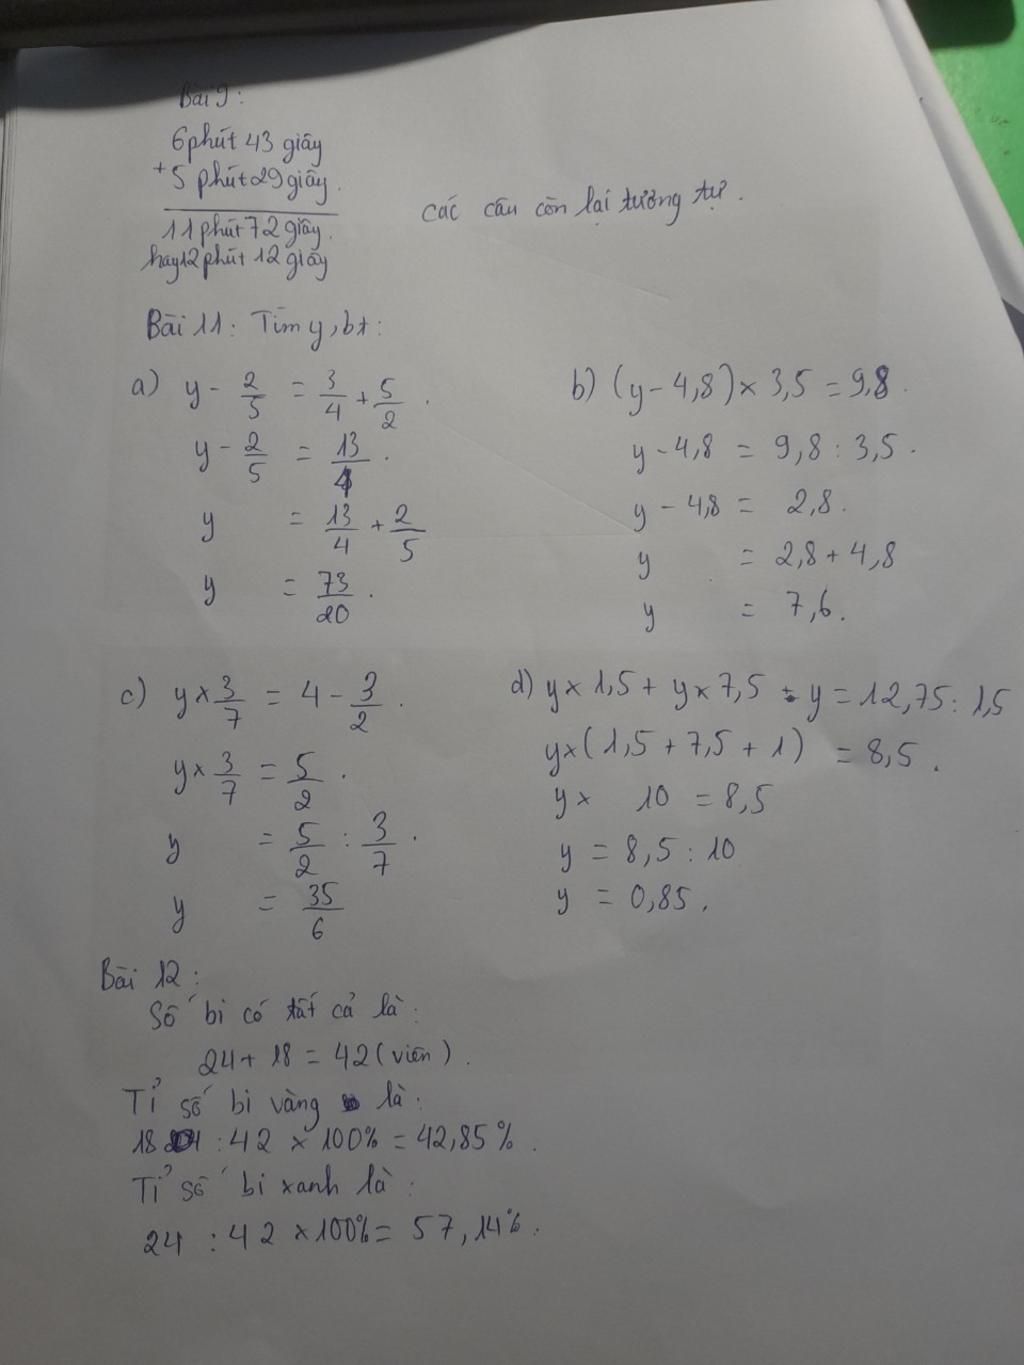 Bài 9:
6 phút 43 giây
+ 5 phút 29 giây.
11 phút 72 giây.
hay 12 phút 12 giây
các câu còn lại tương tự.
Bài 11: Tìm y, bt:
a) y - 2/5 = 3/4 + 5/2.
y - 2/5 = 13/4.
y = 13/4 + 2/5
y = 73/20.
b) (y - 4,8) × 3,5 = 9,8.
y - 4,8 = 9,8 : 3,5.
y - 4,8 = 2,8.
y = 2,8 + 4,8
y = 7,6.
c) y × 3/7 = 4 - 3/2.
y × 3/7 = 5/2.
y = 5/2 : 3/7.
y = 35/6
d) y × 1,5 + y × 7,5 - y = 12,75 : 1,5
y × (1,5 + 7,5 + 1) = 8,5.
y × 10 = 8,5
y = 8,5 : 10
y = 0,85.
Bài 12:
Số bi có tất cả là:
24 + 18 = 42 (viên).
Tỉ số bi vàng là:
18 : 42 × 100% = 42,85%.
Tỉ số bi xanh là:
24 : 42 × 100% = 57,14%.